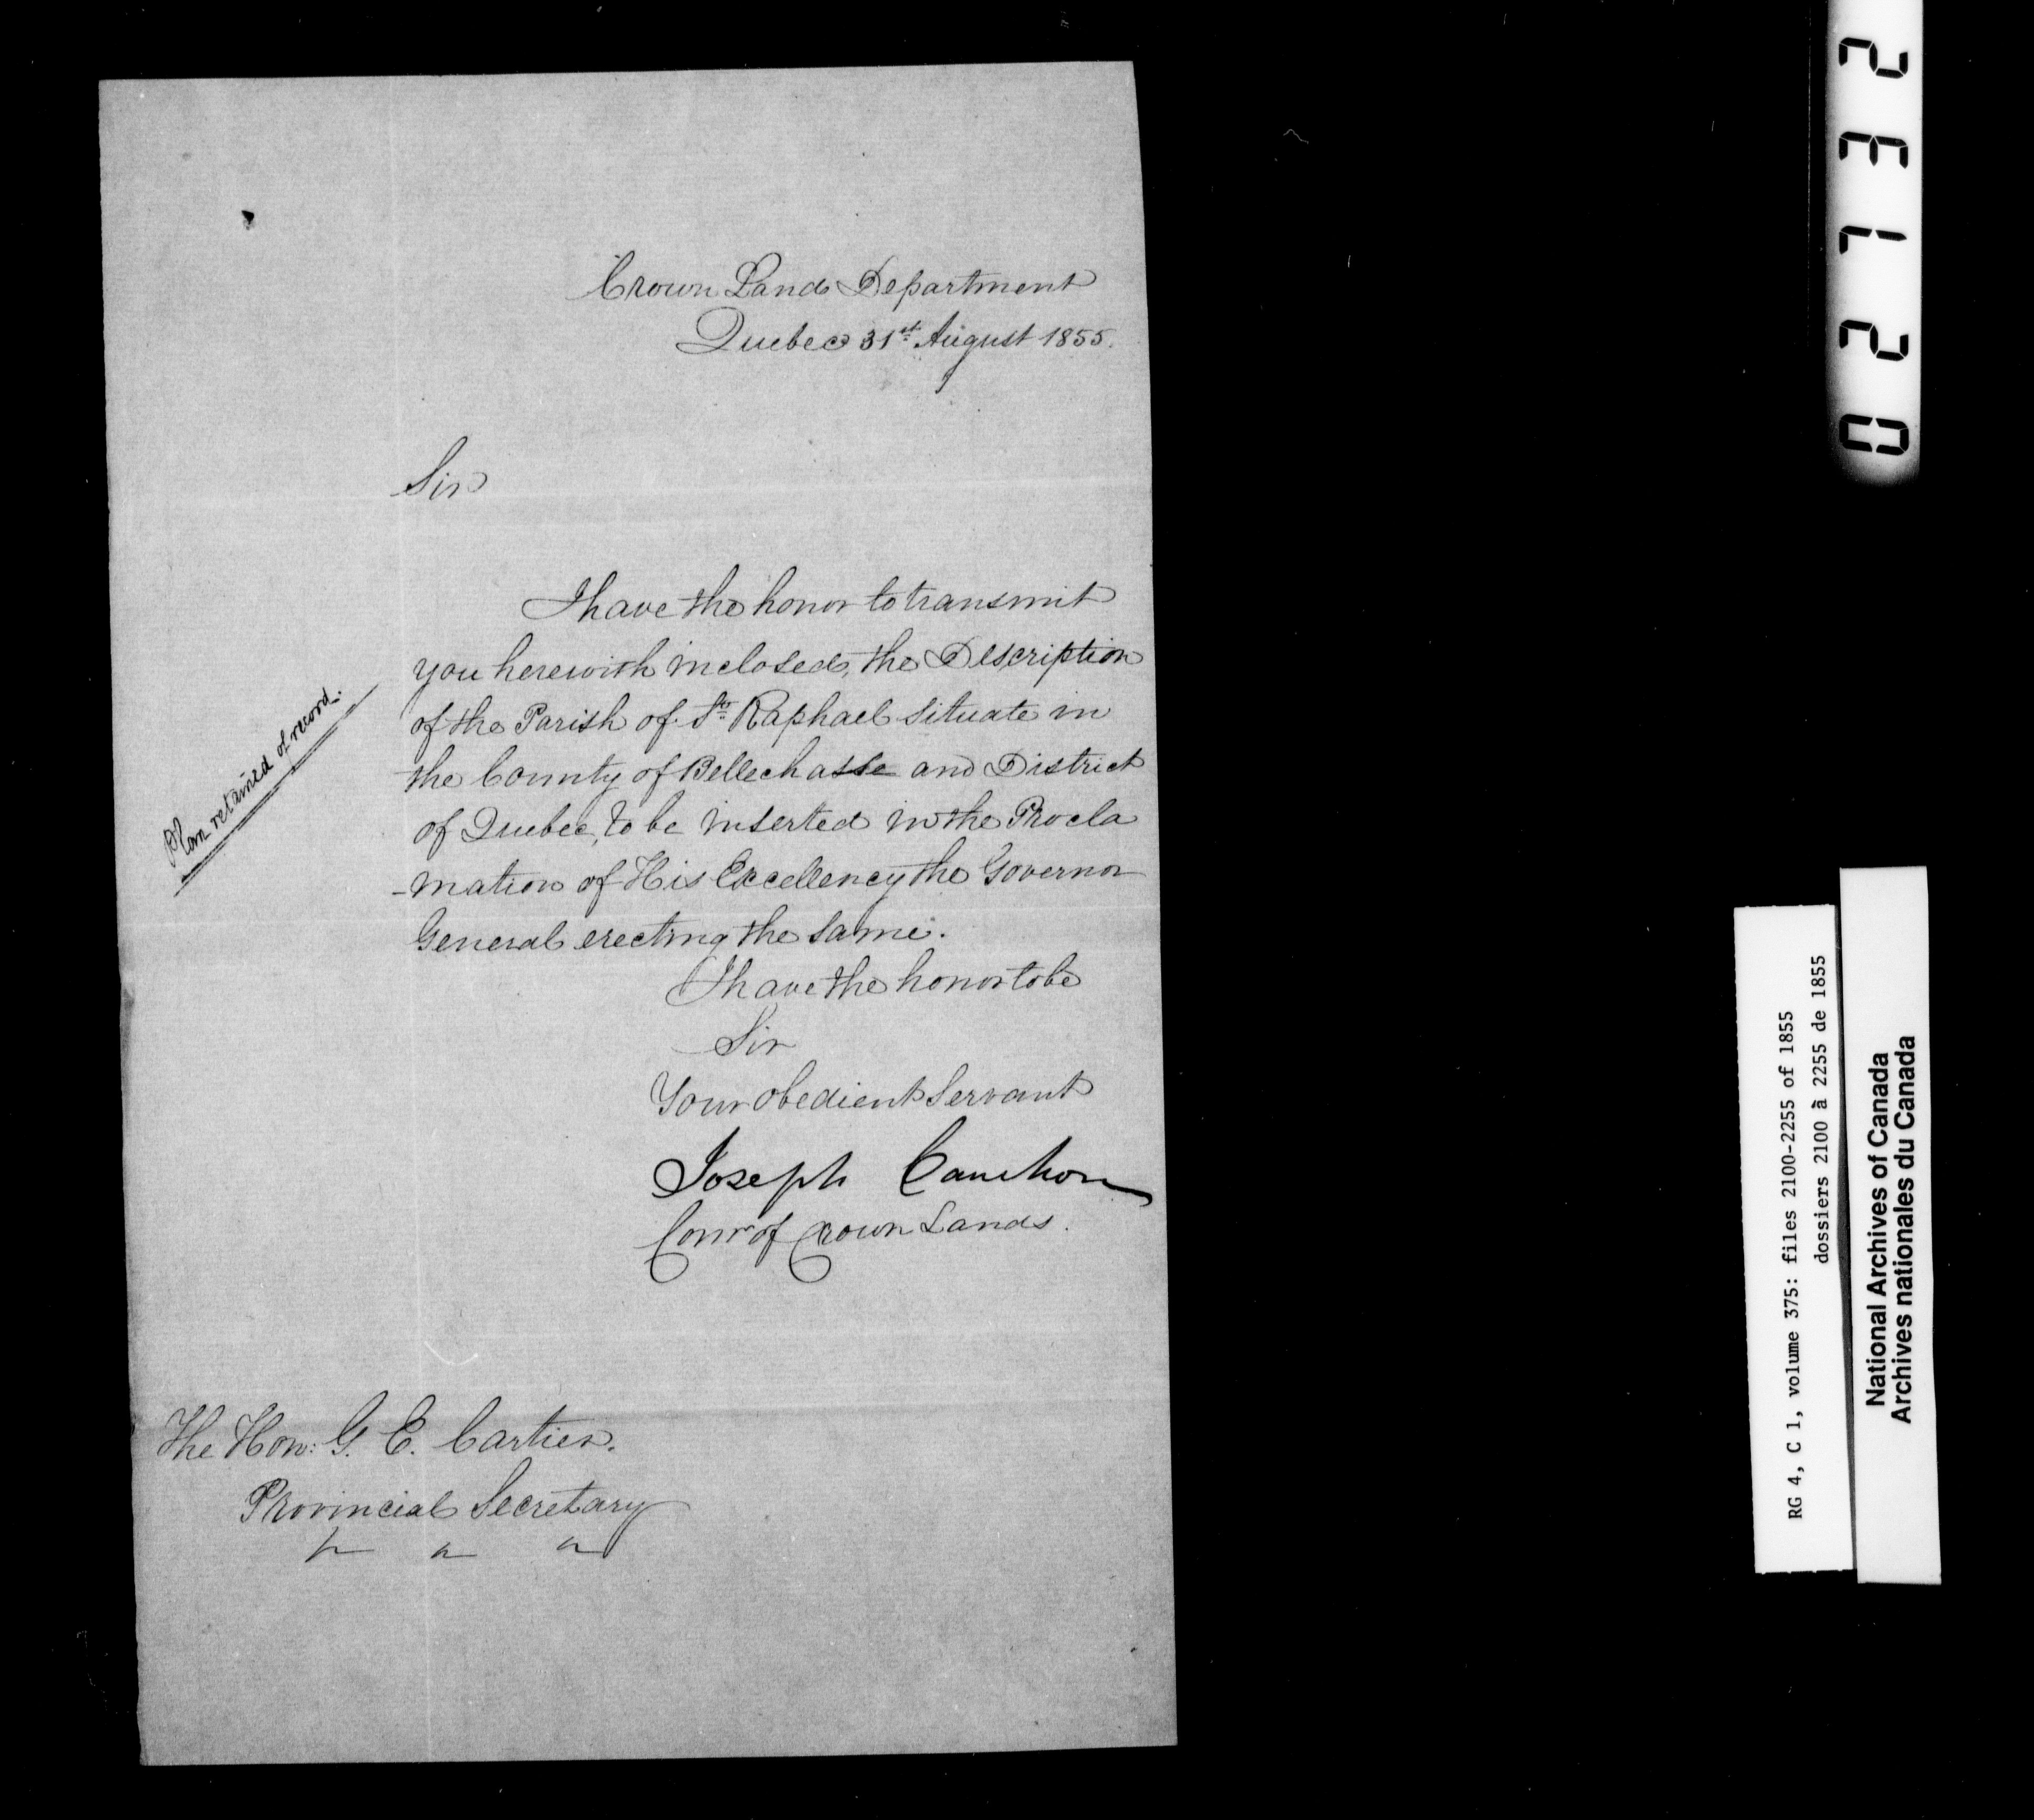 Crown Lands Department
Quebec 31st August 1855.
Sir
I have the honor to transmit
you herewith inclosed, the Description
of the Parish of St Raphael situate in
the County of Bellechasse and District
of Quebec, to be inserted in the Procla
-mation of His Excellency the Governor
General erecting the same.
I have the honor to be
Sir
Your obedient Servant
Joseph Cauchon
Comr of Crown Lands.
Plan retained of record.
The Hon: G. E. Cartier.
Provincial Secretary
02732
RG 4, C 1, volume 375: files 2100-2255 of 1855
dossiers 2100 à 2255 de 1855
National Archives of Canada
Archives nationales du Canada